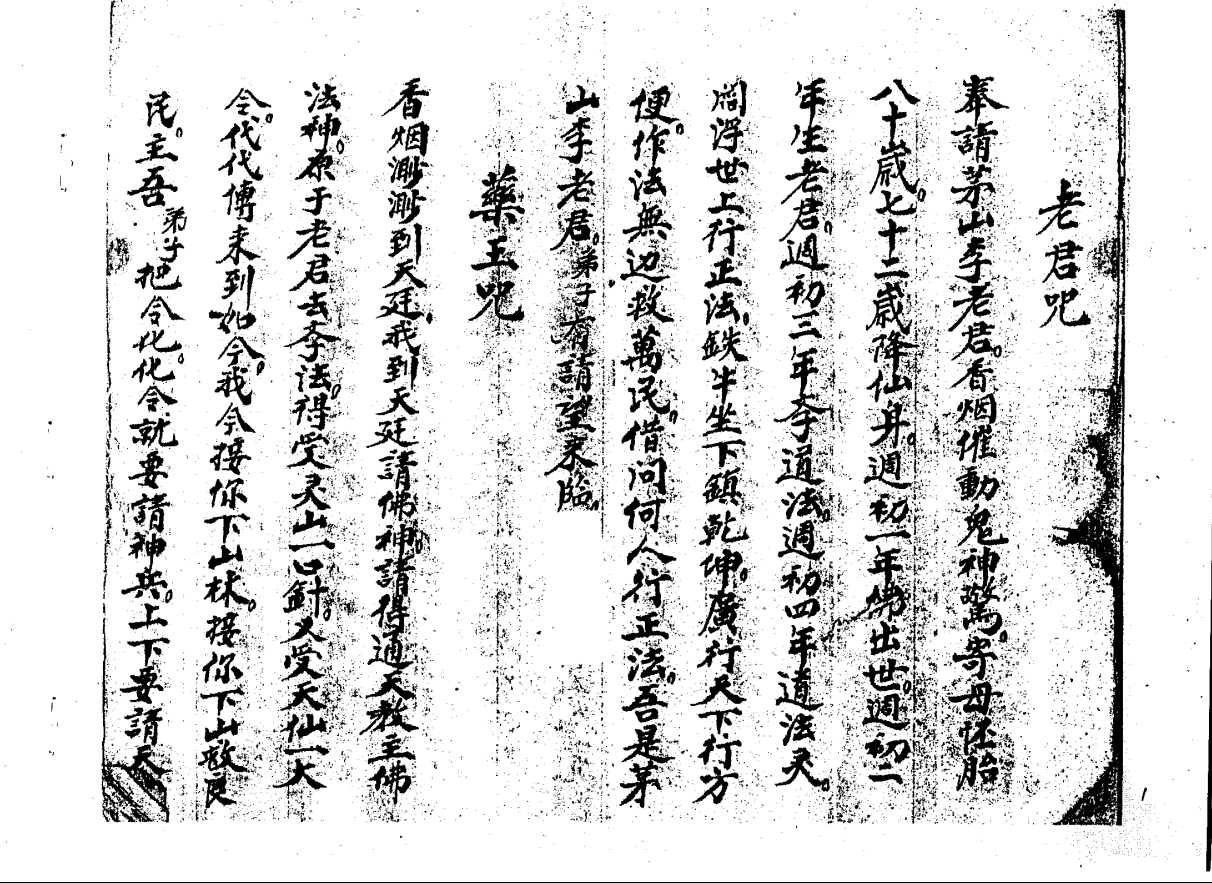 老君咒
奉請茅山李老君。香烟催動鬼神驚。寄母怀胎
八十歲。七十二歲降仙身。週初一年佛出世。週初二
年生老君。週初三年李道法。週初四年道法灵。
閻浮世上行正法。鉄牛坐下鎮乾坤。廣行天下行方
便。作法無边救萬民。借问何人行正法。吾是茅
山李老君。弟子有請望来臨。
藥王咒
香烟渺渺到天廷。我到天廷請佛神。請得通天教主佛
法神。原于老君去李法。得受灵山一口針。又受天仙一大
令。代代傳来到如今。我今接你下山林。接你下山救良
民。主吾弟子把令化。化令就要請神兵。上下要請天
1